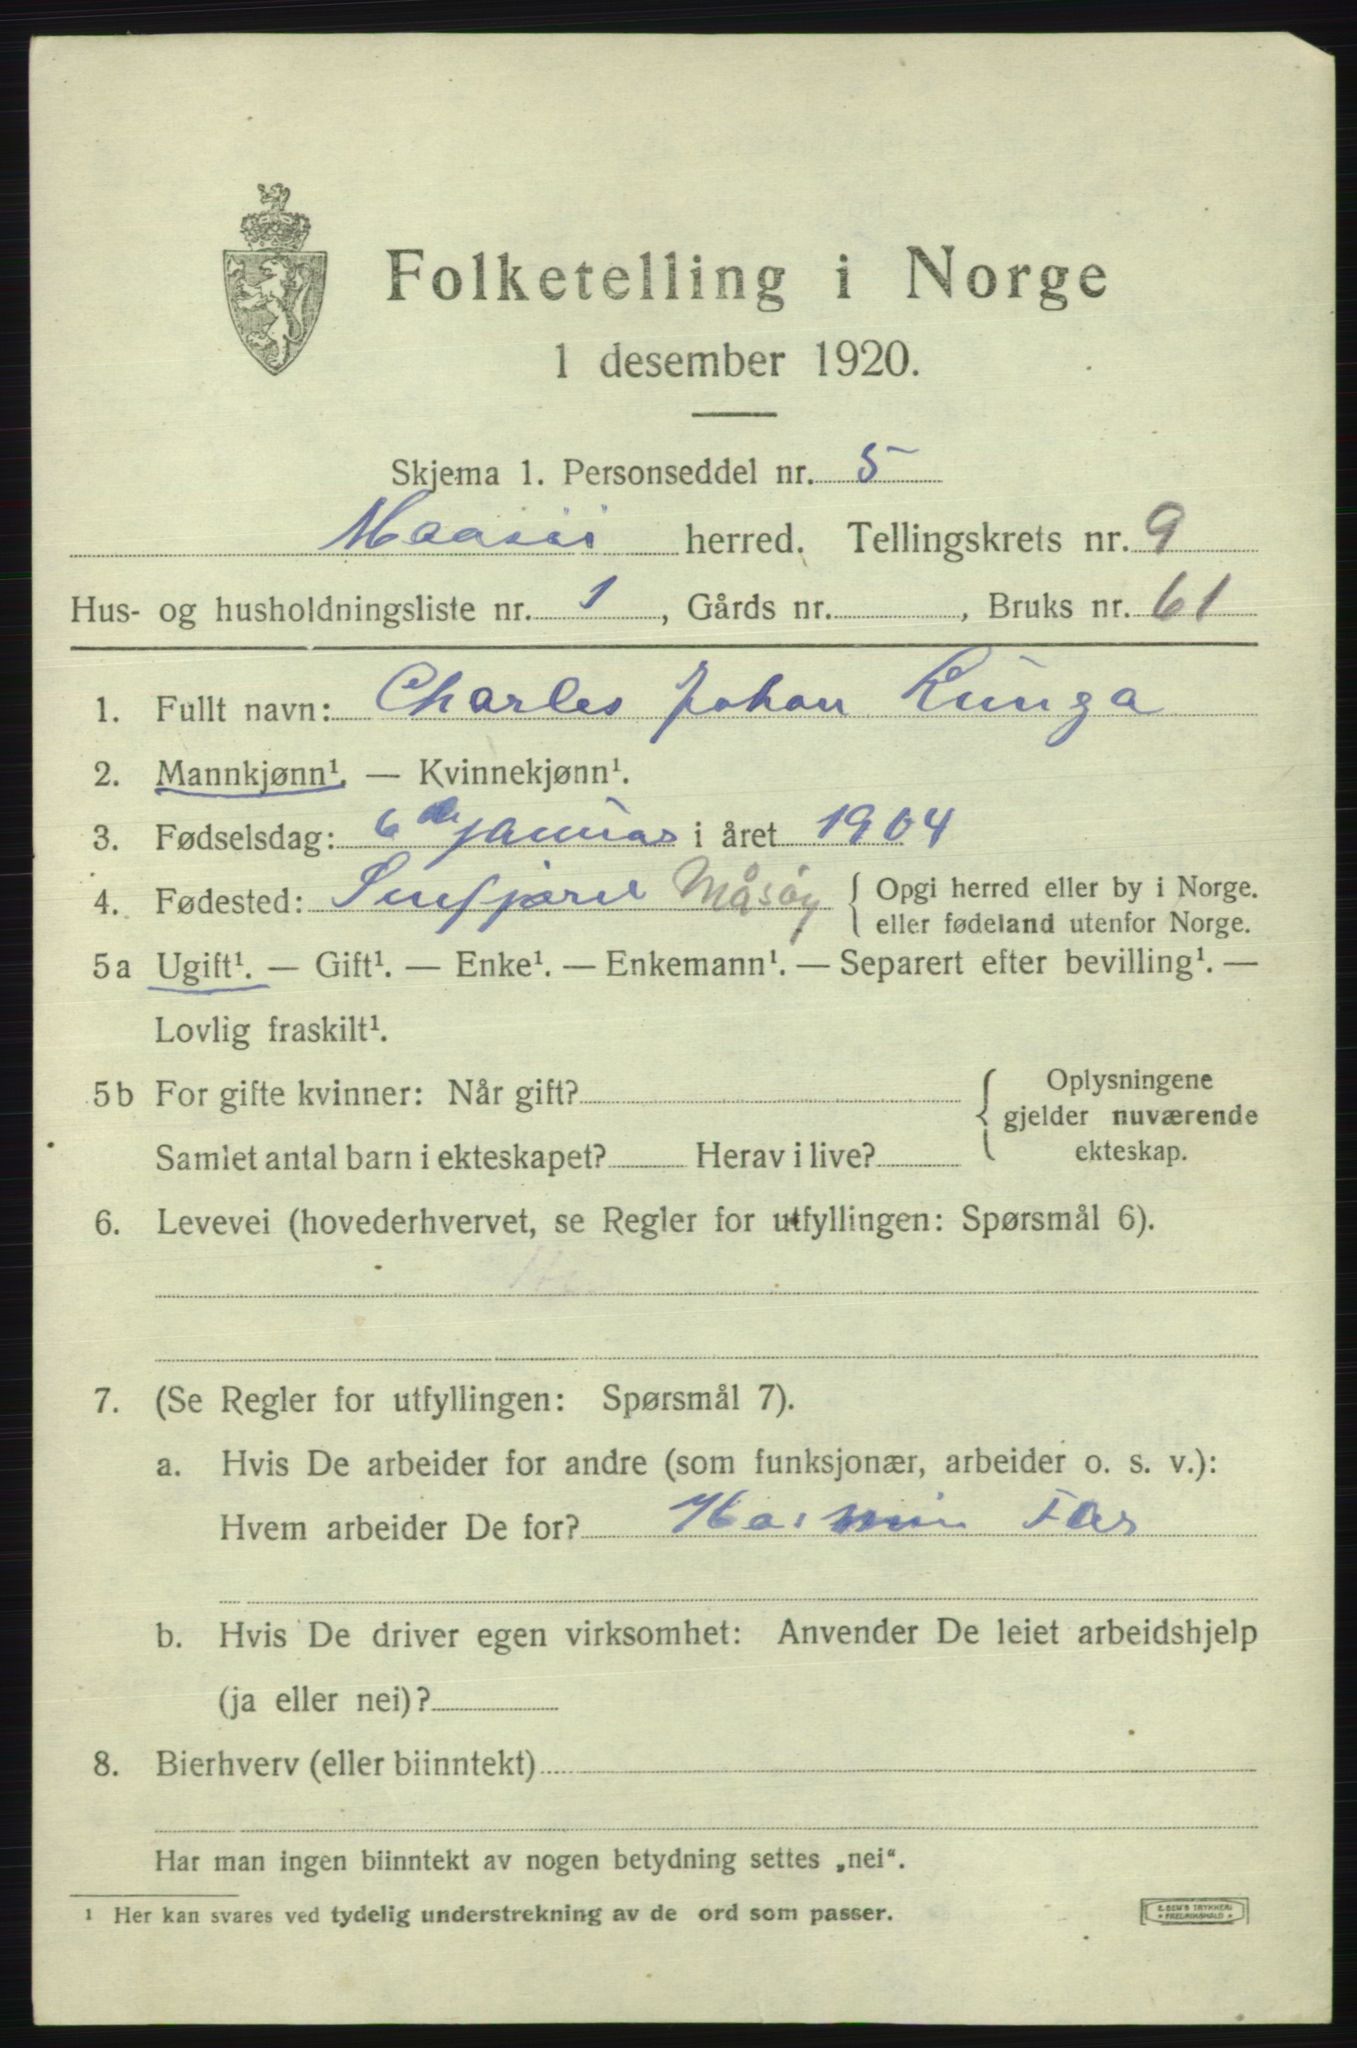 Folketelling i Norge
1 desember 1920.
Skjema 1. Personseddel nr. 5
Maasöi herred. Tellingskrets nr. 9
Hus- og husholdningsliste nr. 1, Gårds nr. , Bruks nr. 61
1. Fullt navn: Charles Johan Kunga
2. Mannkjønn¹. — Kvinnekjønn¹.
3. Fødselsdag: 6 de januar i året 1904
4. Fødested: Måsøy { Opgi herred eller by i Norge.
eller fødeland utenfor Norge.
5a Ugift¹. — Gift¹. — Enke¹. — Enkemann¹. — Separert efter bevilling¹. —
Lovlig fraskilt¹.
5b For gifte kvinner: Når gift? { Oplysningene
gjelder nuværende
Samlet antal barn i ekteskapet? Herav i live? ekteskap.
6. Levevei (hovederhvervet, se Regler for utfyllingen: Spørsmål 6).
7. (Se Regler for utfyllingen: Spørsmål 7).
a. Hvis De arbeider for andre (som funksjonær, arbeider o. s. v.):
Hvem arbeider De for? min Far
b. Hvis De driver egen virksomhet: Anvender De leiet arbeidshjelp
(ja eller nei)?
8. Bierhverv (eller biinntekt)
Har man ingen biinntekt av nogen betydning settes „nei“.
¹ Her kan svares ved tydelig understrekning av de ord som passer.
E. SEM'S TRYKKERI
FREDRIKSHALD